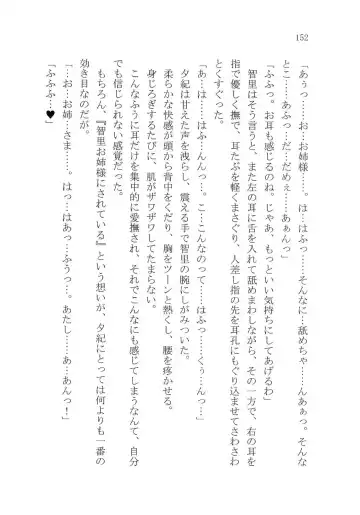 152
「あぅっ……お……お姉様……。は……はふっ……そんなに……舐めちゃ……んあぁっ。そんな
とこ……あふっ……だ……だめぇ……あぁんっ」
「ふふっ。お耳も感じるのね。じゃあ、もっといい気持ちにしてあげるわ」
　智里はそう言うと、また左の耳に舌を入れて舐めまわしながら、その一方で、右の耳を
指で優しく撫で、耳たぶを軽くまさぐり、人差し指の先を耳孔にもぐり込ませてさわさわ
とくすぐった。
「あ……は……はふんんっ……。こ……こんなのって……はふっ……くぅ……んっ……」
　夕紀は甘えた声を洩らし、震える手で智里の腕にしがみついた。
　柔らかな快感が頭から背中をくだり、胸をツーンと熱くし、腰を疼かせる。
　身じろぎするたびに、肌がザワザワしてたまらない。
　こんなふうに耳だけを集中的に愛撫され、それでこんなにも感じてしまうなんて、自分
でも信じられない感覚だった。
　もちろん、『智里お姉様にされている』という想いが、夕紀にとっては何よりも一番の
効き目なのだが。
「……お……お姉……さま……。はっ……はあっ……ふうっ……。あたし……あ……あんっ！」
「ふふふ……♥」